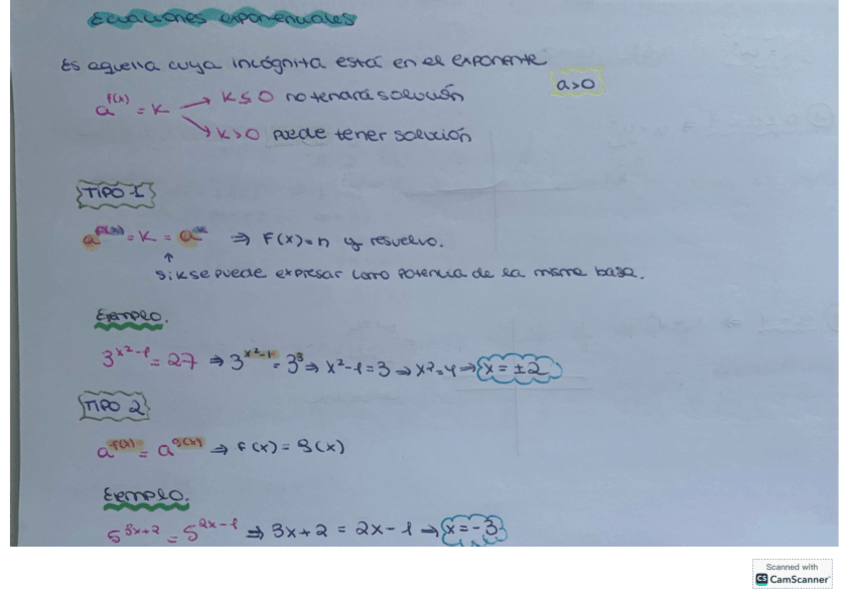 Ecuaciones exponenciales
Es aquella cuya incógnita está en el exponente
a>0
a^f(x) = K → K≤0 no tendrá solución
→ K>0 puede tener solución
TIPO 1
a^f(x) = K = a^n ⇒ F(x)=n y resuelvo.
↑
si K se puede expresar como potencia de la misma base.
Ejemplo.
3^x²-1 = 27 ⇒ 3^x²-1 = 3³ ⇒ x²-1=3 ⇒ x²=4 ⇒ x = ±2
TIPO 2
a^f(x) = a^g(x) ⇒ F(x) = g(x)
Ejemplo.
5^3x+2 = 5^2x-1 ⇒ 3x+2 = 2x-1 ⇒ x=-3
Scanned with
CS CamScanner